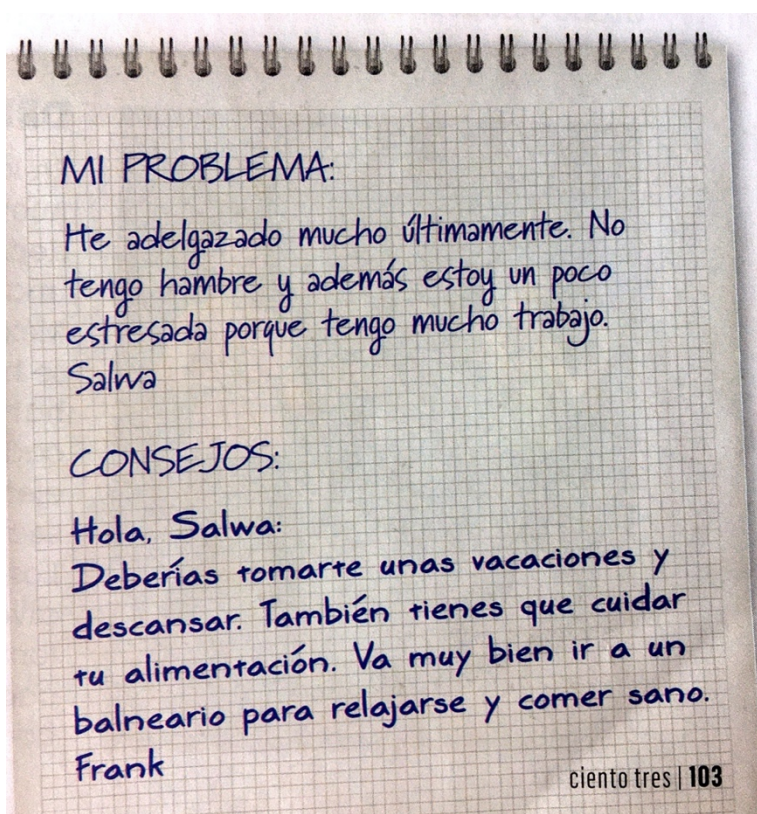 MI PROBLEMA:
He adelgazado mucho últimamente. No
tengo hambre y además estoy un poco
estresada porque tengo mucho trabajo.
Salwa
CONSEJOS:
Hola, Salwa:
Deberías tomarte unas vacaciones y
descansar. También tienes que cuidar
tu alimentación. Va muy bien ir a un
balneario para relajarse y comer sano.
Frank
ciento tres | 103